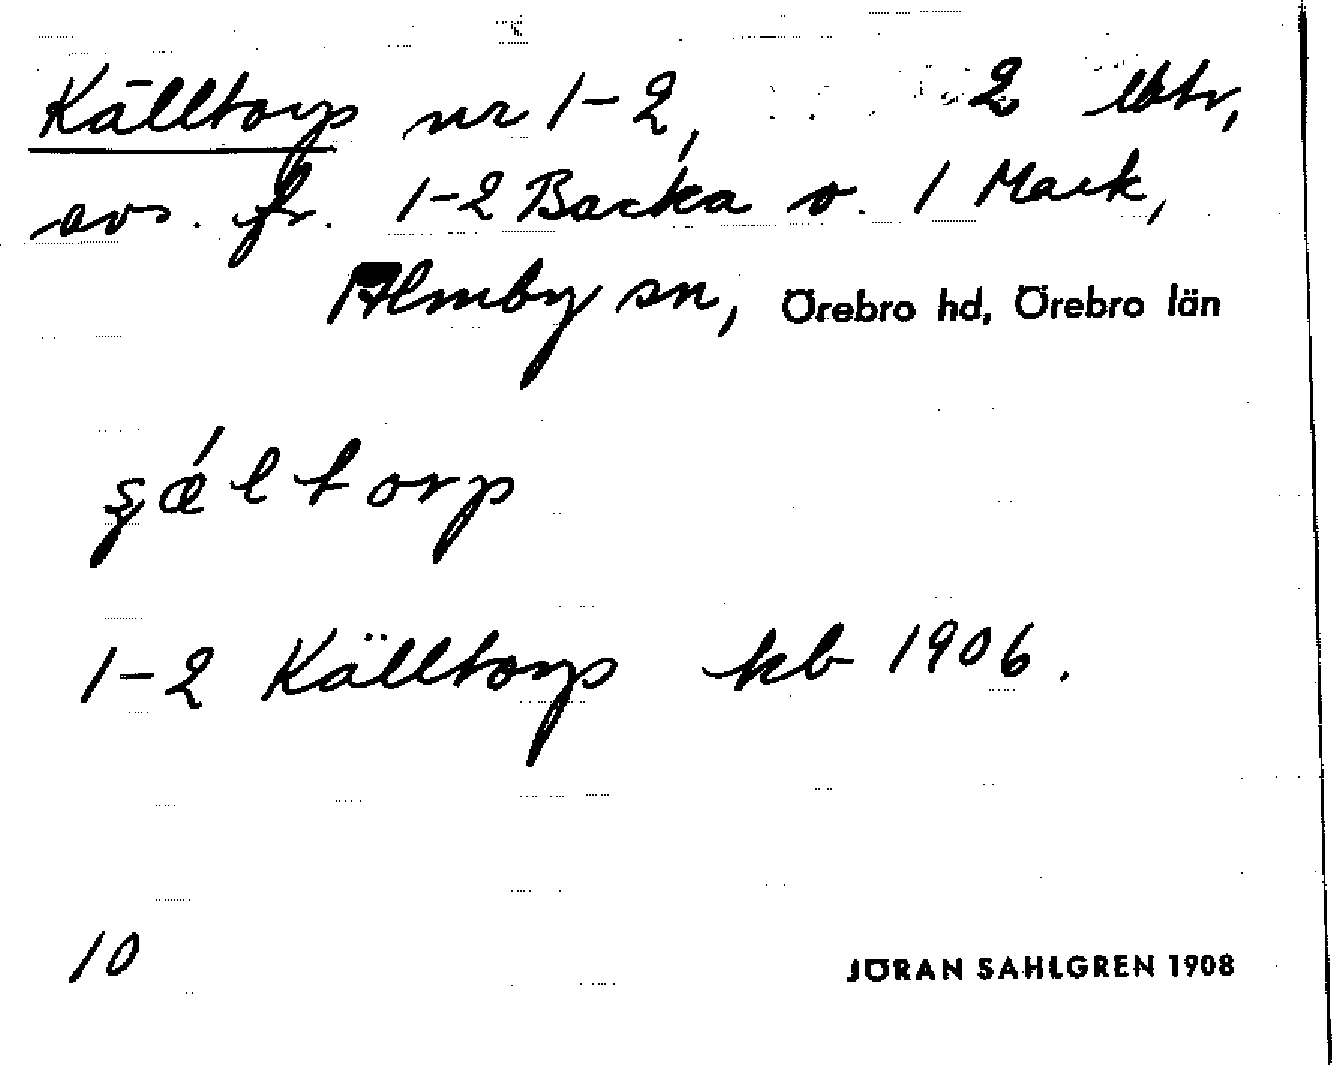 Källtorp nr 1-2, 2 lbtr,
avs. fr. 1-2 Backa o. 1 Mark,
Almby sn, Örebro hd, Örebro län
ʂǽltorp
1-2 Källtorp kb 1906.
10
JÖRAN SAHLGREN 1908